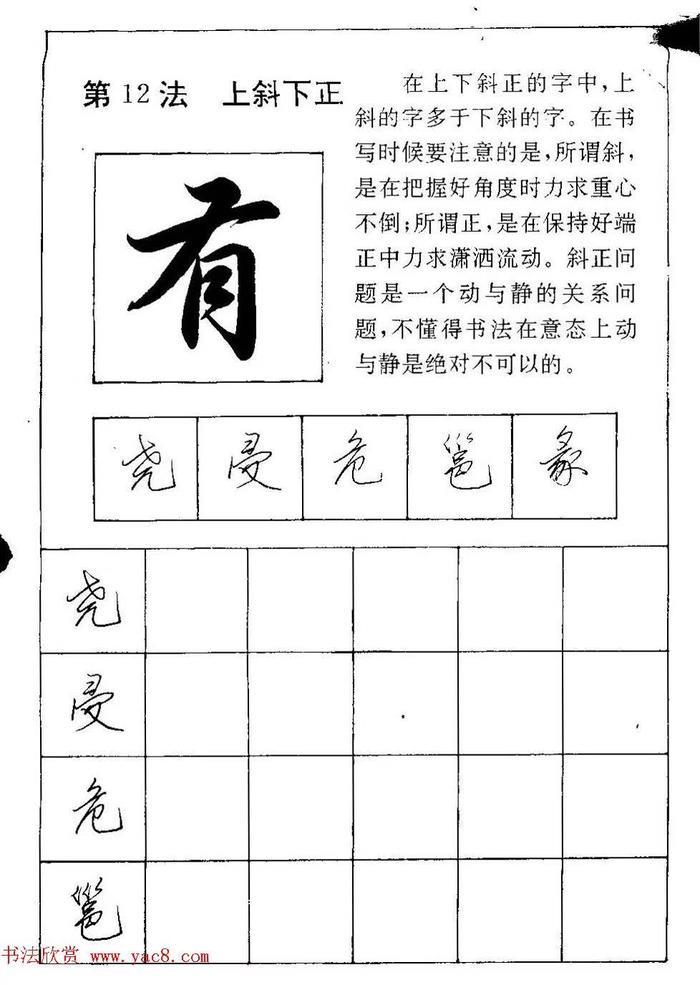 第12法 上斜下正
在上下斜正的字中,上
斜的字多于下斜的字。在书
写时候要注意的是,所谓斜,
是在把握好角度时力求重心
不倒;所谓正,是在保持好端
正中力求潇洒流动。斜正问
题是一个动与静的关系问
题,不懂得书法在意态上动
与静是绝对不可以的。
有
尧 曼 危 邕 彖
尧
曼
危
邕
书法欣赏 www.yac8.com